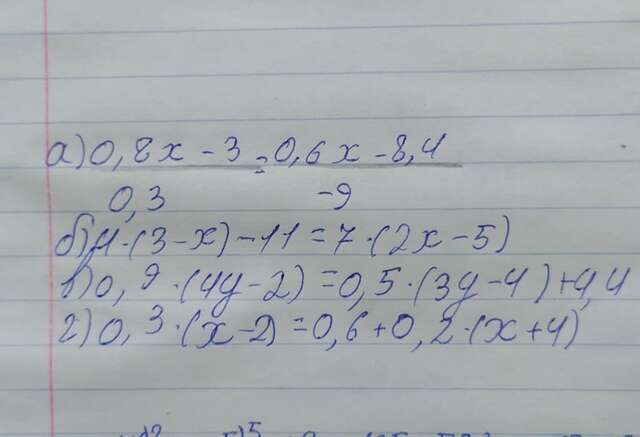 а) 0,8x - 3 = 0,6x - 8,4
0,3 -9
б) 4·(3-x) - 11 = 7·(2x-5)
в) 0,9·(4y-2) = 0,5·(3y-4) + 4,4
г) 0,3·(x-2) = 0,6 + 0,2·(x+4)